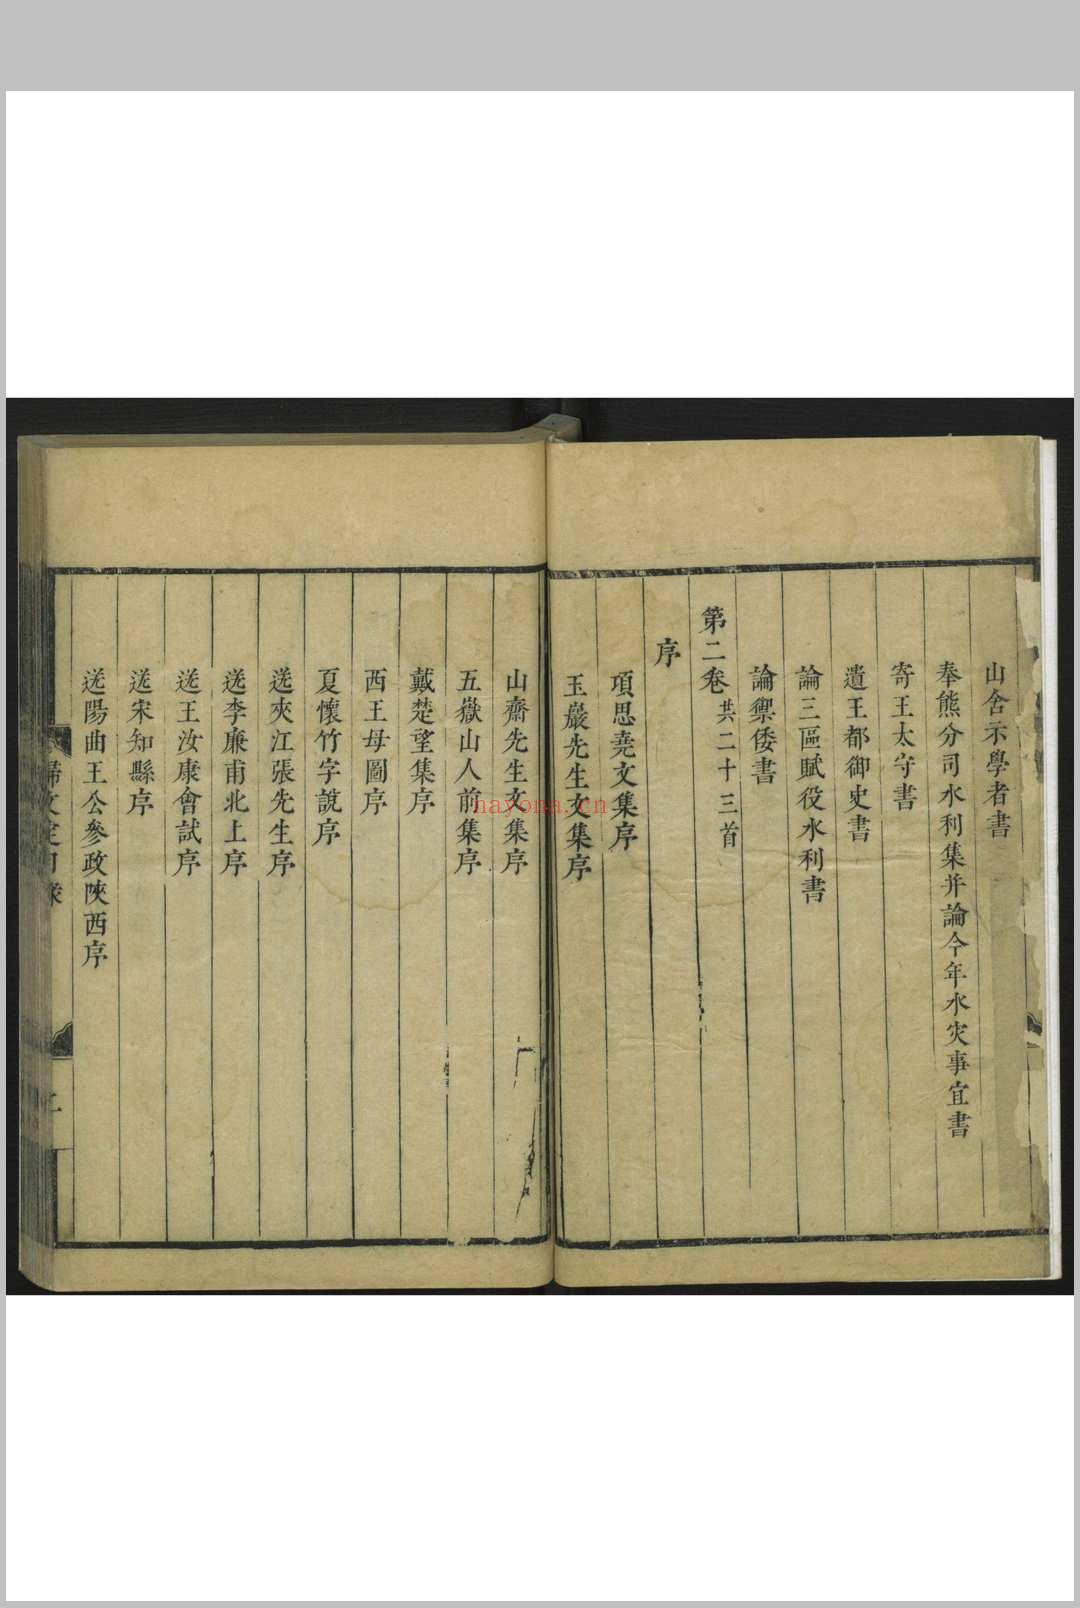 山舍示學者書
奉熊分司水利集并論今年水灾事宜書
寄王太守書
遺王都御史書
論三區賦役水利書
論禦倭書
第二卷 共二十三首
序
項思堯文集序
玉巖先生文集序
山齋先生文集序
五嶽山人前集序
戴楚望集序
西王母圖序
夏懷竹字說序
送夾江張先生序
送李廉甫北上序
送王汝康會試序
送宋知縣序
送陽曲王公參政陝西序
歸文定目錄
二
nayona.cn